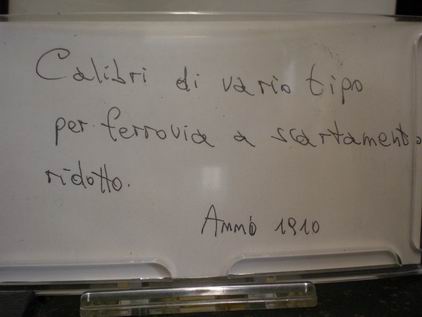 Calibri di vario tipo
per ferrovia a scartamento
ridotto.
Annó 1910